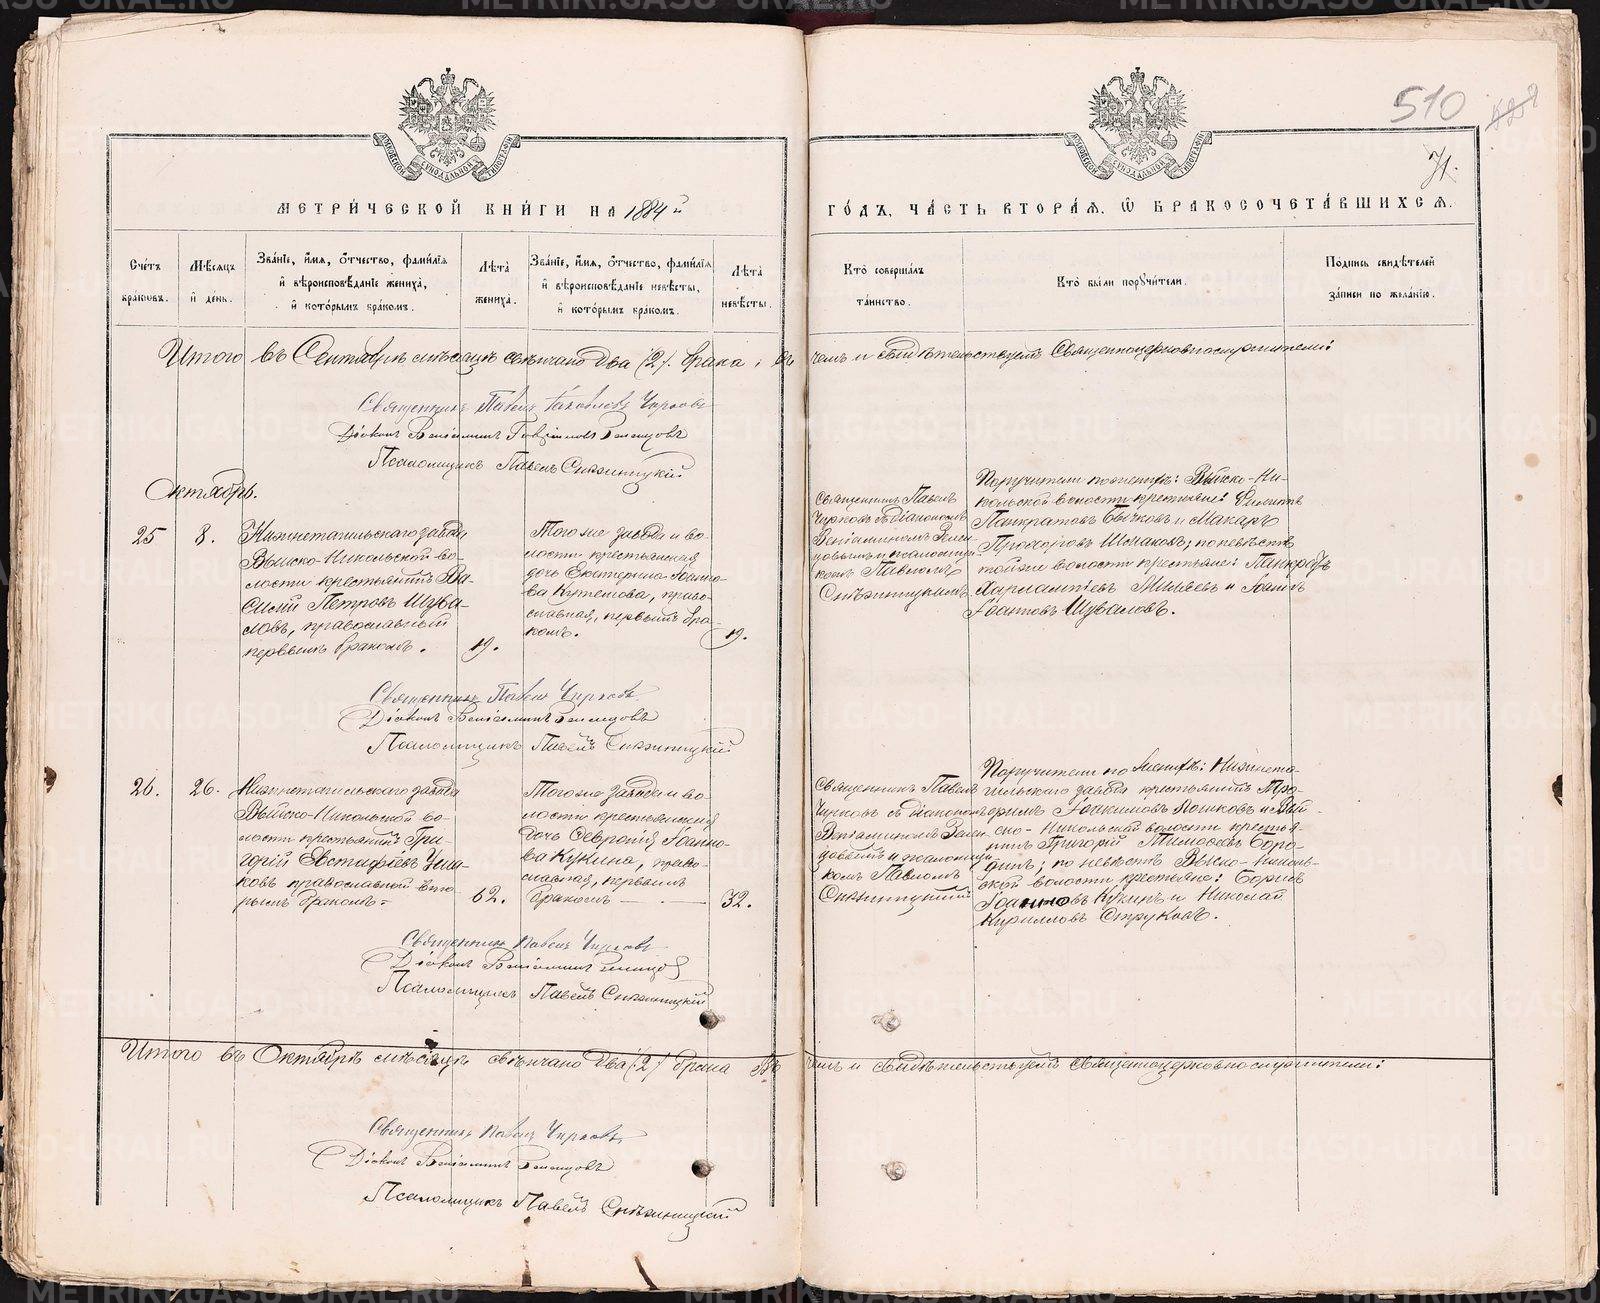 510
71.
МЕТРИ́ЧЕСКОЙ КНИ́ГИ НА 1884 й
ГО́ДЪ, ЧА́СТЬ ВТОРА́Я, Ѡ БРАКОСОЧЕТА́ВШИХСЯ.
Сче́тъ браковъ.
Мѣ́сяцъ и҆ де́нь.
Зва́нїе, и҆́мя, ѻ҆́тчество, фами́лїя
и҆ вѣроисповѣ́данїе жениха̀,
и҆ кото́рымъ бра́комъ.
Лѣ́та жениха̀.
Зва́нїе, и҆́мя, ѻ҆́тчество, фами́лїя
и҆ вѣроисповѣ́данїе невѣ́сты,
и҆ кото́рымъ бра́комъ.
Лѣ́та невѣ́сты.
Кто̀ соверша́лъ
та́инство.
Кто̀ бы́ли порꙋчи́тели.
Подпись свидѣ́телей
за́писи по жела́нїю.
Итого въ Сентябрѣ мѣсяцѣ свѣнчано два (2) брака, въ чемъ и свидѣтельствуемъ Священноцерковнослужители:
Священникъ Павелъ Чирковъ
Діаконъ Веніаминъ
Псаломщикъ Павелъ
Октябрь.
25
8.
Нижнетагильскаго завода
Выйско-Никольской во-
лости крестьянинъ Ва-
силій Петровъ Шува-
ловъ, православный
первымъ бракомъ.
19.
Того же завода и во-
лости крестьянская
дочь Екатерина Іоанно-
ва, право-
славная, первымъ бра-
комъ.
19.
Священникъ Павелъ
Чирковъ съ діакономъ
Веніаминомъ
и псаломщи-
комъ Павломъ
Поручители по женихѣ: Выйско-Ни-
кольской волости крестьяне: Филиппъ
Панкратовъ Бычковъ и Макаръ
Прохоровъ; по невѣстѣ
той же волости крестьяне:
Харлампіевъ и Іоаннъ
Іоанновъ Шуваловъ.
Священникъ Павелъ Чирковъ
Діаконъ Веніаминъ
Псаломщикъ Павелъ
26.
26.
Нижнетагильскаго завода
Выйско-Никольской во-
лости крестьянинъ Гри-
горій Евстафіевъ
православной вто-
рымъ бракомъ
62.
Того же завода и во-
лости крестьянская
дочь Февронія Іоанно-
ва Кукина, право-
славная, первымъ
бракомъ
32.
Священникъ Павелъ
Чирковъ съ діакономъ
Веніаминомъ
и псаломщи-
комъ Павломъ
Поручители по женихѣ: Нижнета-
гильскаго завода крестьянинъ Тро-
фимъ Іоакимовъ и Вый-
ско-Никольской волости крестья-
нинъ Григорій Тимофеевъ Боро-
динъ; по невѣстѣ Выйско-Николь-
ской волости крестьяне: Борисъ
Іоанновъ Кукинъ и Николай
Кирилловъ Струковъ.
Священникъ Павелъ Чирковъ
Діаконъ Веніаминъ
Псаломщикъ Павелъ
Итого въ Октябрѣ мѣсяцѣ свѣнчано два (2) брака въ чемъ и свидѣтельствуемъ Священноцерковнослужители:
Священникъ Павелъ Чирковъ
Діаконъ Веніаминъ
Псаломщикъ Павелъ
METRIKI.GASO-URAL.RU